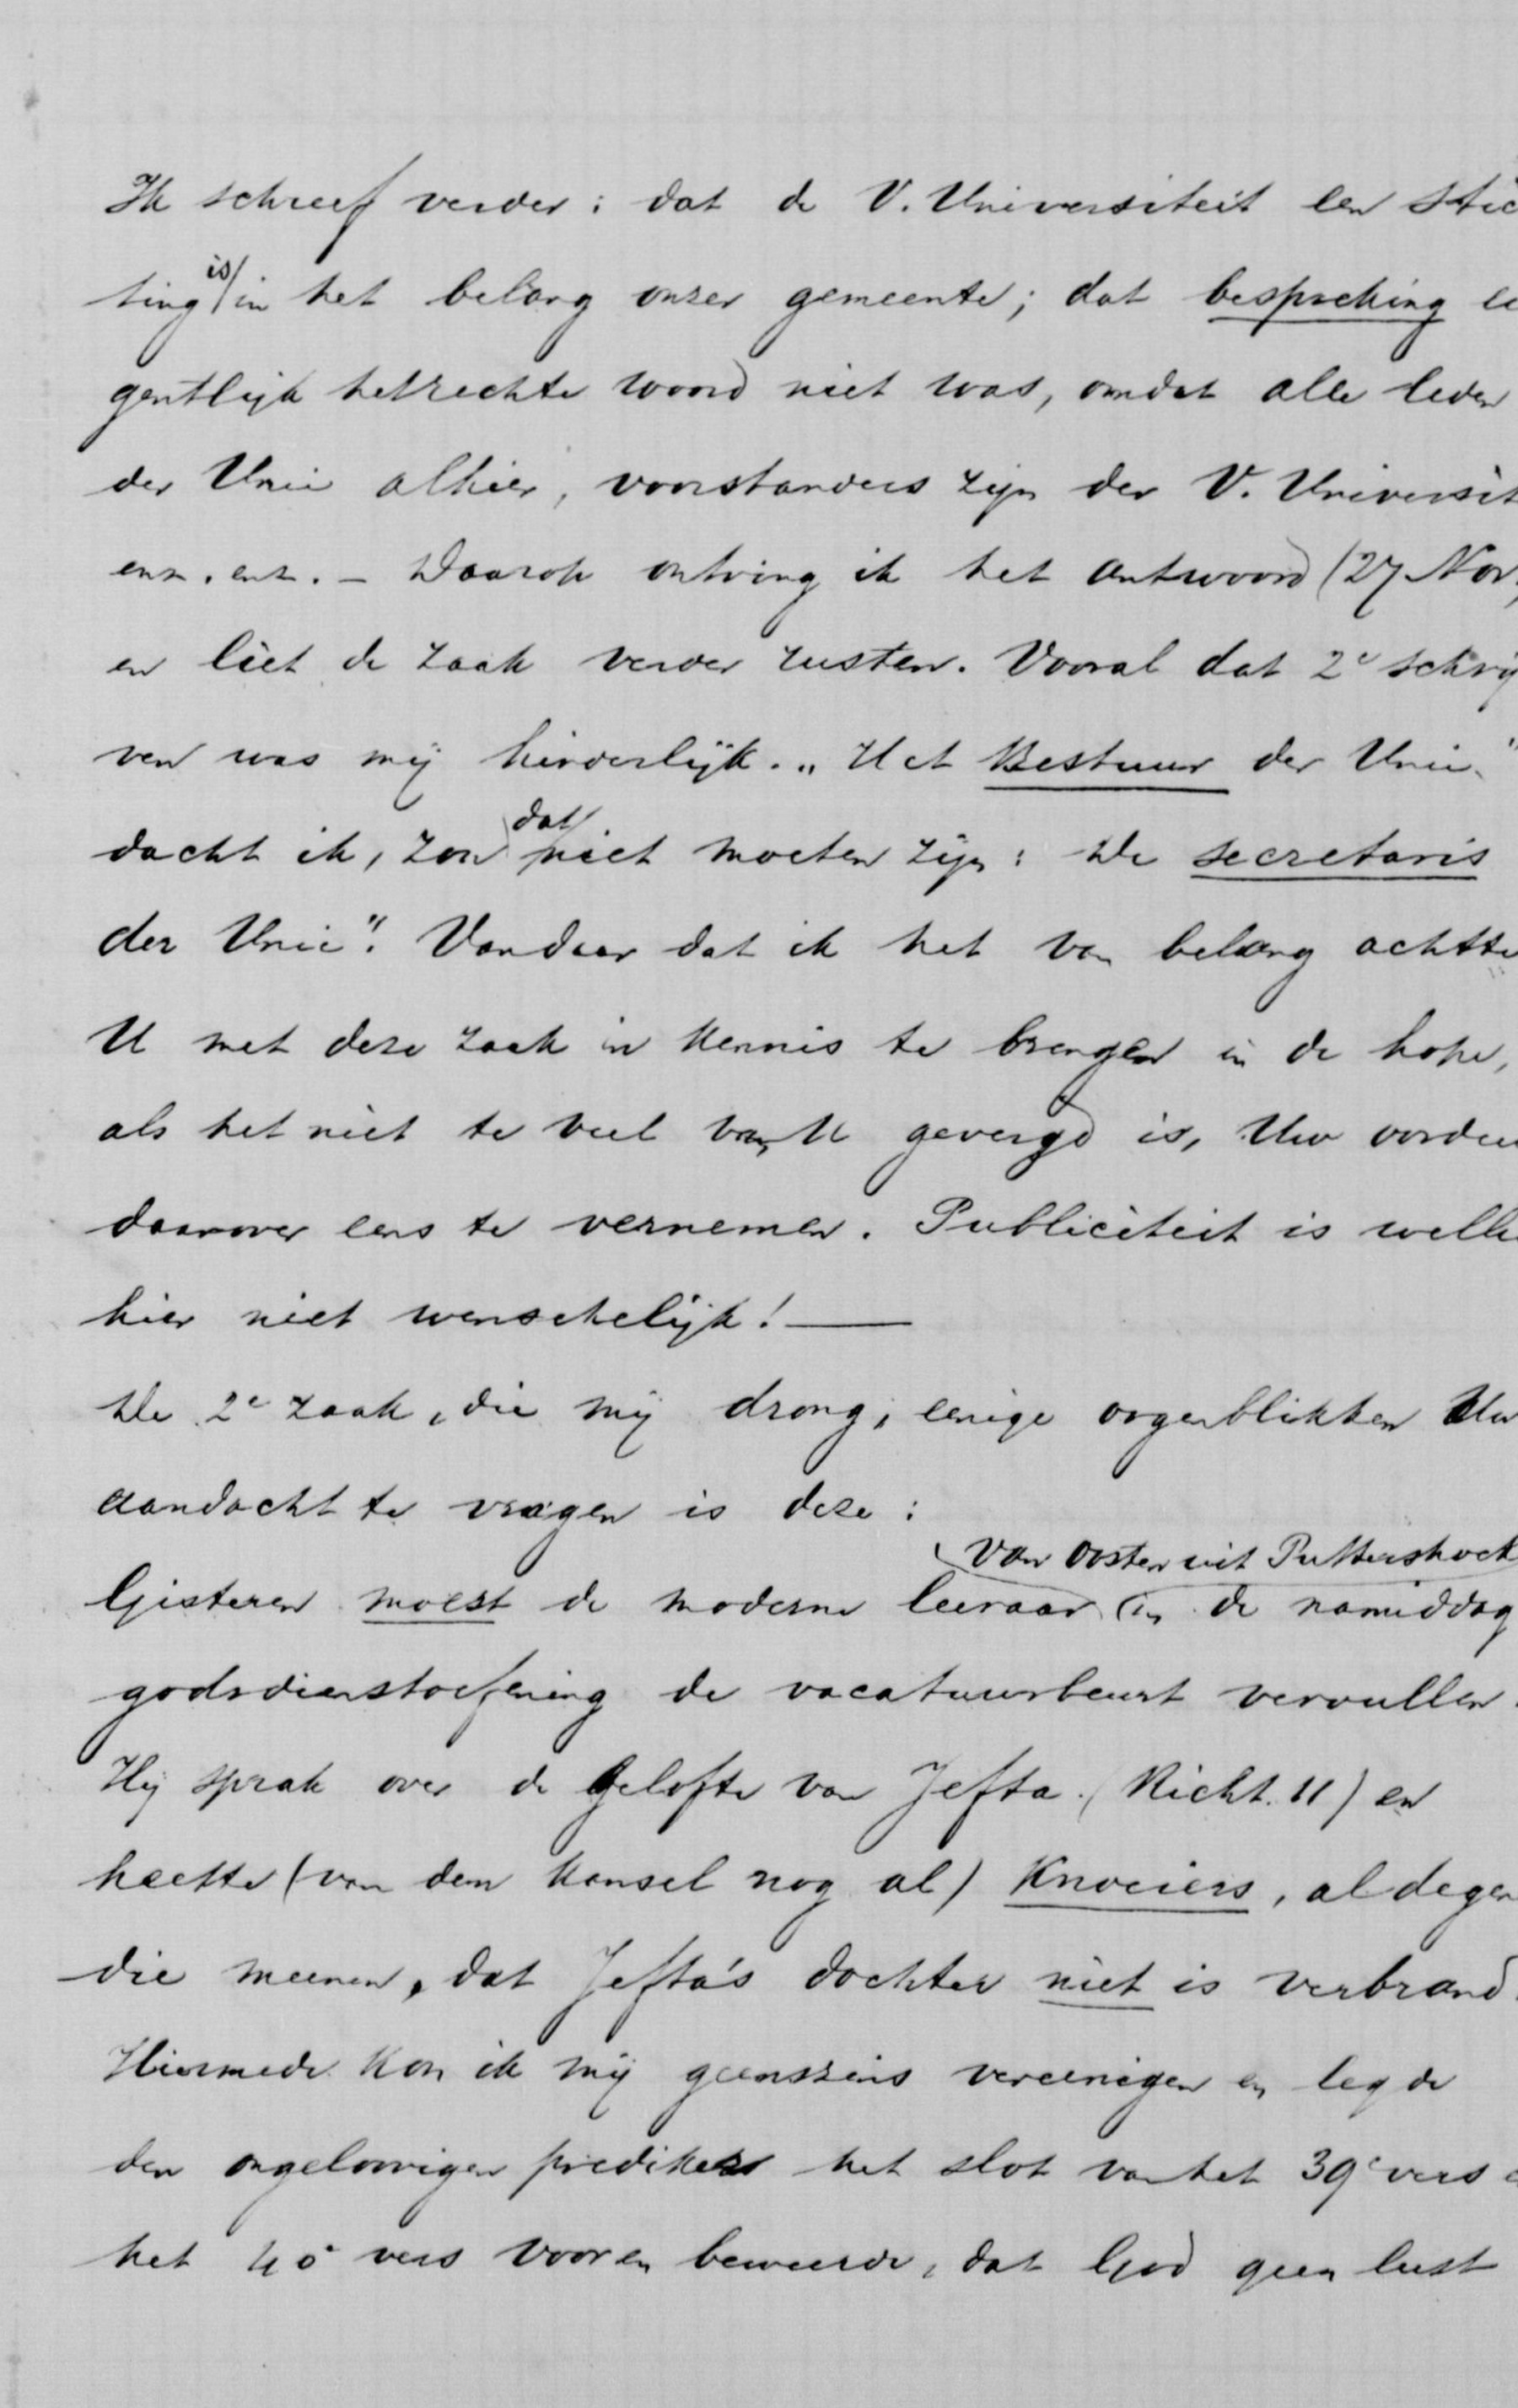 Ik schreef verder: dat de V. Universiteit een stic
ting is in het belang onzer gemeente; dat bespreking ei
gentlijk het rechte woord niet was, omdat alle leden
der Unie alhier, voorstanders zijn der V. Universit
enz. enz. – Daarop ontving ik het antwoord (27 Nov.
en liet de zaak verder rusten. Vooral dat 2e schrij
ven was mij hinderlijk. „Het Bestuur der Unie"
dacht ik, zou dat niet moeten zijn: De secretaris
der Unie". Vandaar dat ik het van belang achtte
U met deze zaak in kennis te brengen in de hope,
als het niet te veel van U gevergd is, Uw oordeel
daarover eens te vernemen. Publiciteit is welli
hier niet wenschelijk! —
De 2e zaak, die mij drong, eenige oogenblikken Uw
aandacht te vragen is deze:
van Oosten uit Puttershoek
Gisteren moest de moderne leeraar in de namiddag
godsdienstoefening de vacatuurbeurt vervullen.
Hij sprak over de gelofte van Jefta. (Richt. 11) en
heette (van den kansel nog al) Knoeiers, al degen
die meenen, dat Jefta's dochter niet is verbrand.
Hiermede kon ik mij geenszins vereenigen en legde
den ongeloovigen prediker het slot van het 39e vers e
het 40e vers voor en beweerde, dat God geen lust